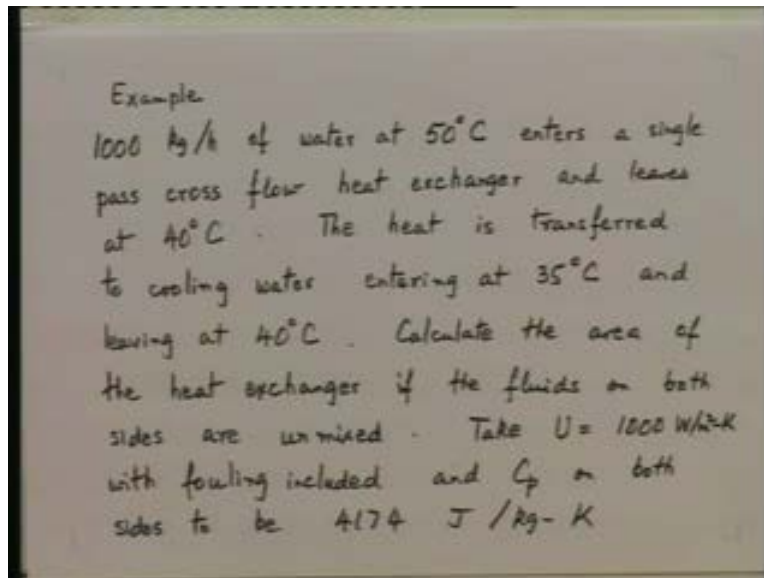 Example
1000 kg/h of water at 50°C enters a single
pass cross flow heat exchanger and leaves
at 40°C . The heat is transferred
to cooling water entering at 35°C and
leaving at 40°C . Calculate the area of
the heat exchanger if the fluids on both
sides are unmixed . Take U = 1000 W/m²-K
with fouling included and Cp on both
sides to be 4174 J/kg-K